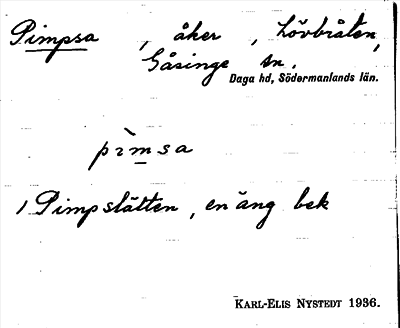 Pimpsa, åker, Lövbråten,
Gåsinge sn.
Daga hd, Södermanlands län.
pìmsa
1 Pimpslätten, en äng bek
KARL-ELIS NYSTEDT 1936.